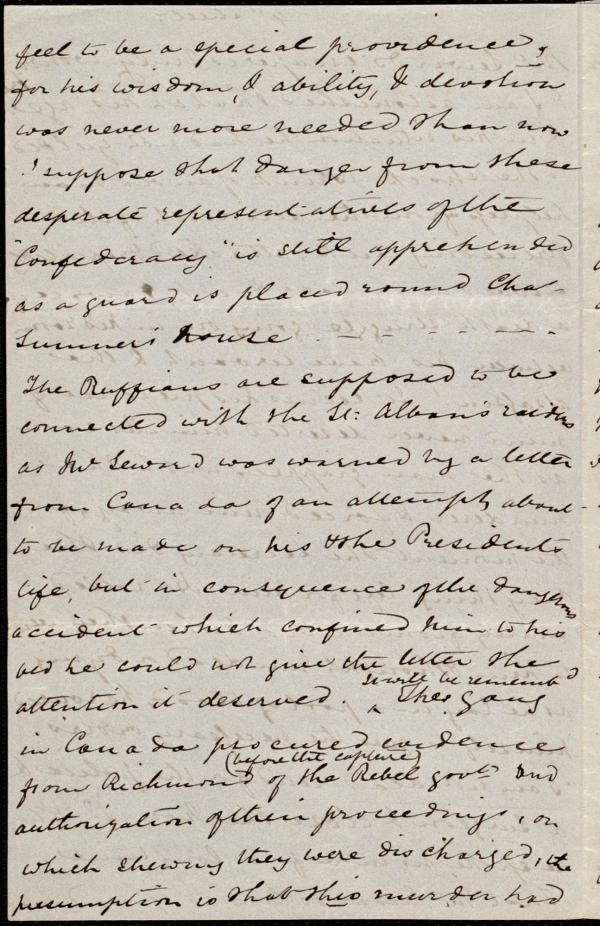 feel to be a special providence,
for his wisdom, & ability, & devotion
was never more needed than now
I suppose that danger from these
desperate representatives of the
"Confederacy" is still apprehended
as a guard is placed round Cha-
Sumner's house - - - - - -
The Ruffians are supposed to be
connected with the St: Alban's raiders
as Mr Seward was warned by a letter
from Canada of an attempt, about
to be made on his & the President's
life, but in consequence of the dangerous
accident which confined him to his
bed he could not give the letter the
attention it deserved. It will be rememb'd
The gang
in Canada procured evidence
(before the capture)
from Richmond of the Rebel govt and
authorization of their proceedings, on
which shewing they were discharged, the
presumption is that this murder had